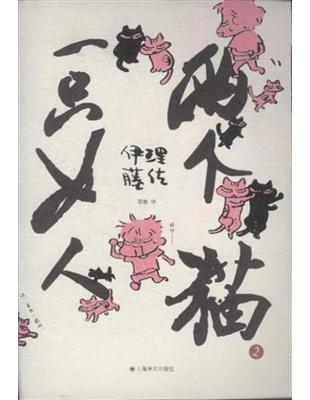 两个猫
一只女人
伊藤理佐
李颖 译
2
上海译文出版社